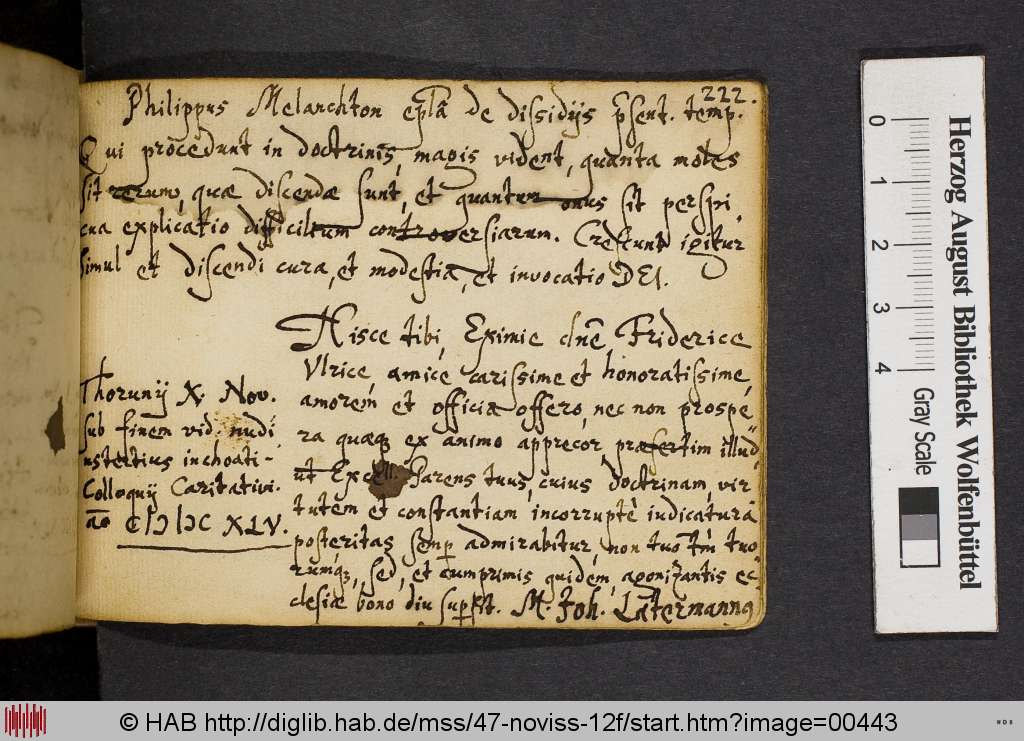 222.
Philippus Melanchton epla de dissidijs psent. temp.
Qui procedunt in doctrinis, magis vident, quanta moles
sit rerum, quæ discendæ sunt, et quantum onus sit perspi,
cua explicatio difficilium controversiarum. Crescunt igitur
simul et discendi cura, et modestia, et invocatio DEI.
Hisce tibi, Eximie dne Friderice
Vlrice, amice carissime et honoratissime,
amorem et officia offero, nec non prospe,
ra quæq; ex animo apprecor, præsertim illud
ut Excell. Parens tuus, cuius doctrinam, vir
tutem et constantiam incorruptè iudicatura
posteritas semp admirabitur, non tuo tm tuo
rumq;, sed, et cumprimis quidem, agonizantis ec
clesiæ bono diu supsit. M. Joh. Latermannq
Thorunij X. Nov.
sub finem vid. nudi,
ustertius inchoati-
Colloquij Caritativi.
ao CIↃ IↃC XLV.
0 1 2 3 4
Gray Scale
Herzog August Bibliothek Wolfenbüttel
© HAB http://diglib.hab.de/mss/47-noviss-12f/start.htm?image=00443